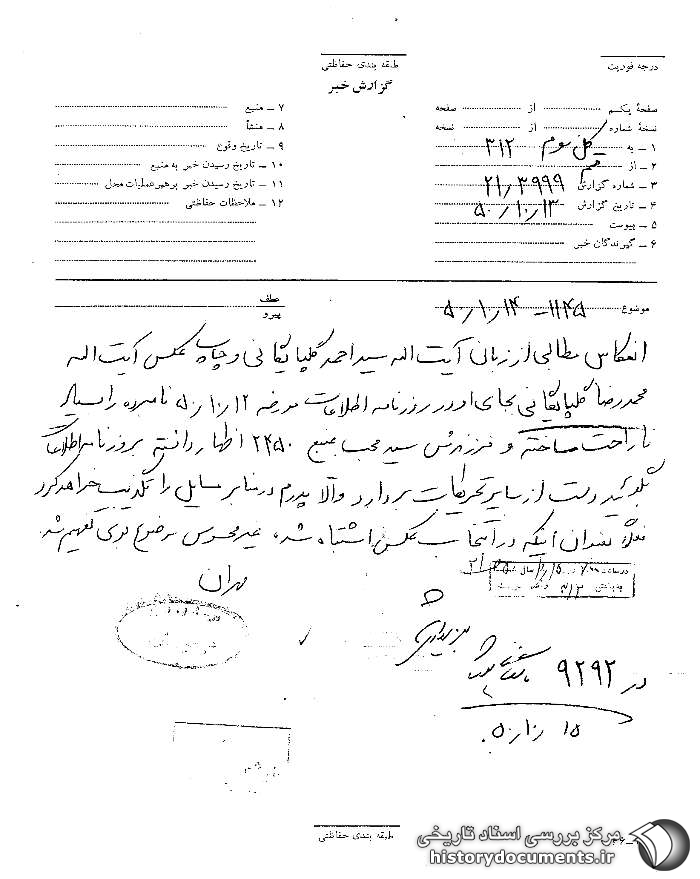 درجه فوریت
طبقه بندی حفاظتی
گزارش خبر
صفحهٔ یکم از صفحه
نسخهٔ شماره از نسخه
۱ ـ به کل سوم ۳۱۲
۲ ـ از قم
۳ ـ شماره گزارش ۲۱/۳۹۹۹
۴ ـ تاریخ گزارش ۵۰/۱۰/۱۳
۵ ـ پیوست
۶ ـ گیرندگان خبر
۷ ـ منبع
۸ ـ منشأ
۹ ـ تاریخ وقوع
۱۰ ـ تاریخ رسیدن خبر به منبع
۱۱ ـ تاریخ رسیدن خبر برهبر عملیات محل
۱۲ ـ ملاحظات حفاظتی
موضوع ۱۱۴۵ - ۵۰/۱۰/۱۴
عطف
پیرو
انعکاس مطالبی از زبان آیت اله سید احمد گلپایگانی و چاپ عکس آیت اله
محمدرضا گلپایگانی بجای او در روزنامه اطلاعات مورخه ۵۰/۱۰/۱۲ نامبرده را بسیار
ناراحت ساخته و فرزندش سید محب بمنبع ۲۴۵۰ اظهار داشته بروزنامه اطلاعات
بگوئید دست از سایر تحریکات بردارد والا پدرم در منابر مسایل را تکذیب خواهد کرد
فعلاً بعنوان اینکه در انتخاب عکس اشتباه شده غیرمحسوس موضوع بوی تفهیم شد
مهران
در ۹۲۹۲
۱۵/۱۰/۵۰
طبقه بندی حفاظتی
مرکز بررسی اسناد تاریخی
historydocuments.ir